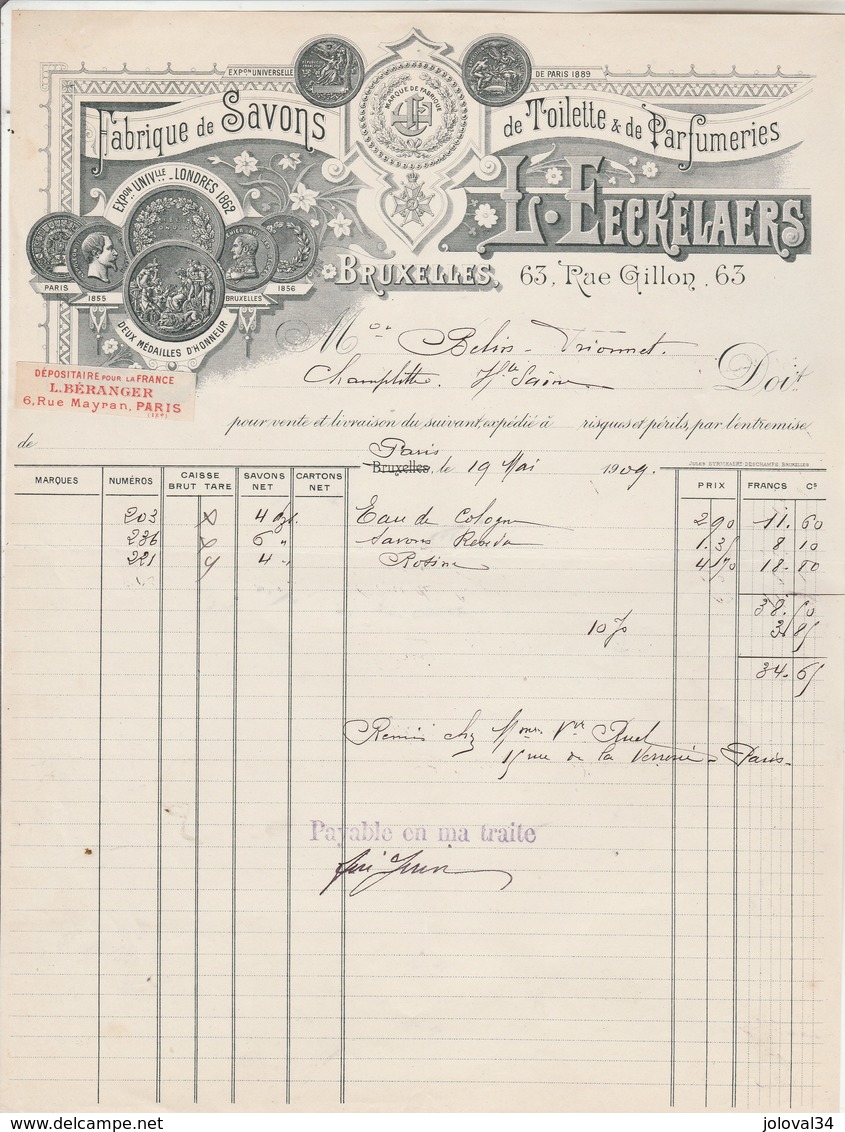 EXPON UNIVERSELLE DE PARIS 1889
MARQUE DE FABRIQUE
Fabrique de Savons de Toilette & de Parfumeries
EXPON UNIVLLE - LONDRES 1862
L. EECKELAERS
BRUXELLES, 63, Rue Gillon, 63
PARIS 1855
BRUXELLES 1856
DEUX MÉDAILLES D'HONNEUR
Mon Belin-Vionnet Doit
Champlitte Hte Saône
DÉPOSITAIRE POUR LA FRANCE
L. BÉRANGER
6, Rue Mayran, PARIS
(IXe)
pour vente et livraison du suivant, expédié à risques et périls, par l'entremise
de
Paris
Bruxelles, le 19 Mai 1909.
MARQUES NUMÉROS CAISSE BRUT TARE SAVONS NET CARTONS NET PRIX FRANCS CS
203 x 4 dz. Eau de Cologne 2 90 11. 60
236 x 6 " Savons Reseda 1. 35 8 10
221 x 4 " Rosine 4 70 18. 80
38. 50
10 % 3. 85
34. 65
Remis chez Mme Vve
15 rue de la Verrerie - Paris -
Payable en ma traite
joloval34